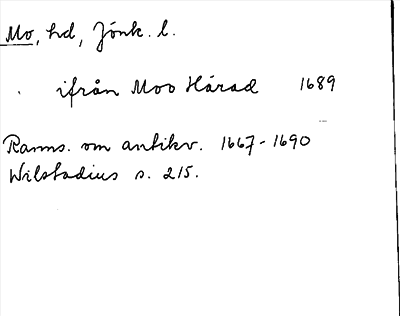 Mo, hd, Jönk. l.
ifrån Moo Härad 1689
Ranns. om antikv. 1667-1690
Wilstadius s. 215.